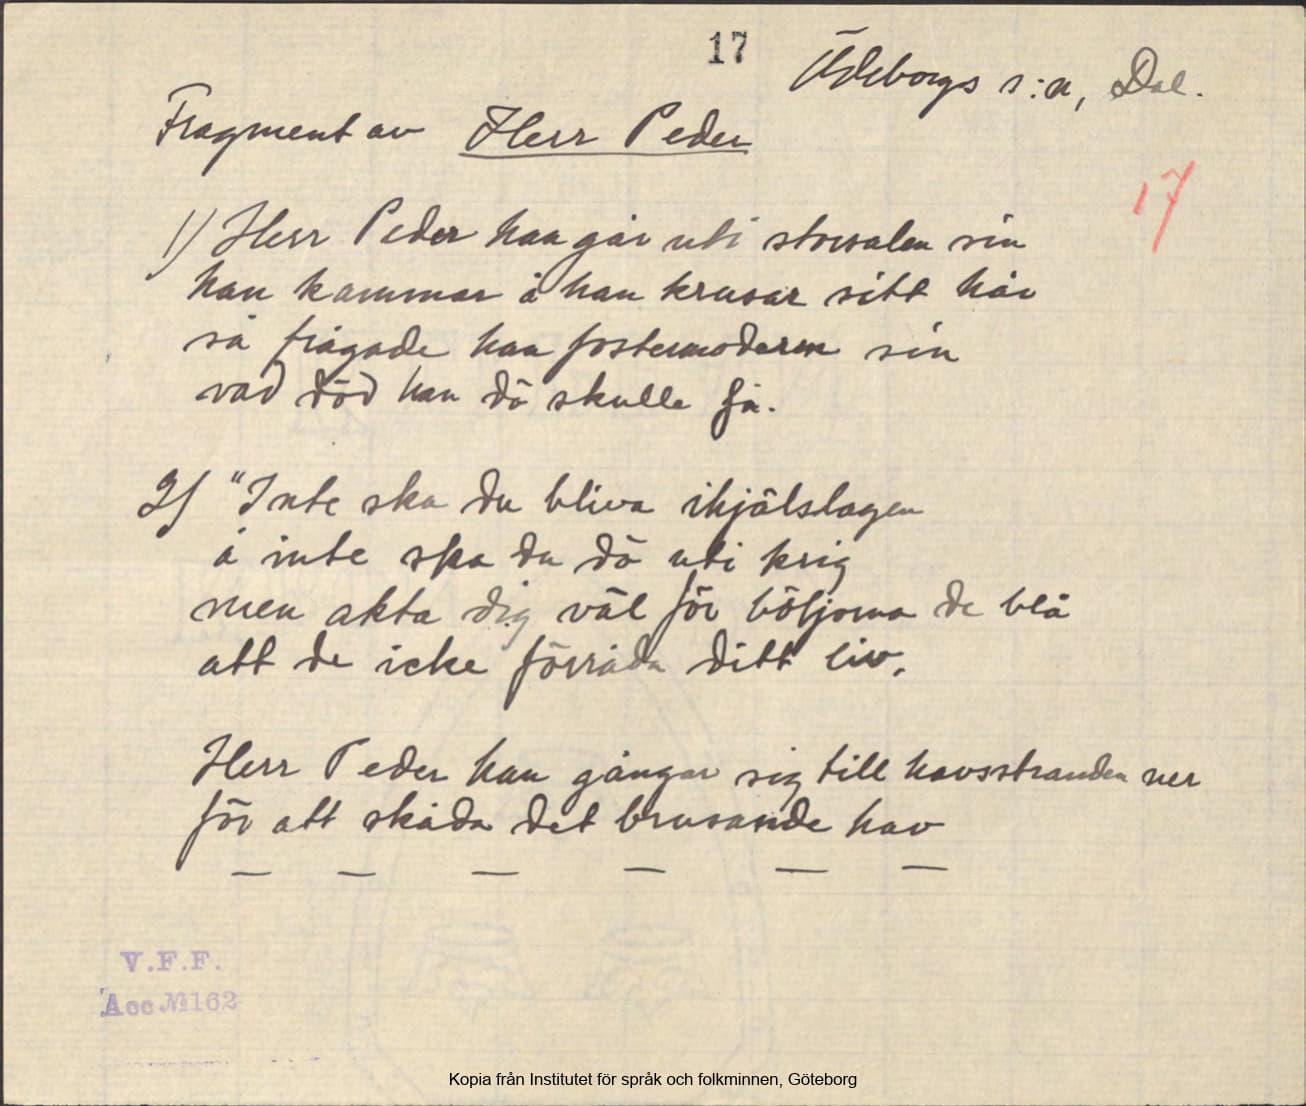 17
Ödeborgs s:n, Dal.
Fragment av Herr Peder
17
1) Herr Peder han går uti storsalen sin
han kammar å han krusar sitt hår
så frågade han fostermodern sin
vad död han dö skulle få.
2) "Inte ska du bliva ihjälslagen
å inte ska du dö uti krig
men akta dig väl för böljorna de blå
att de icke förråda ditt liv.
Herr Peder han gångar sig till havsstranden ner
för att skåda det brusande hav
— — — — — —
V.F.F.
Acc №162
Kopia från Institutet för språk och folkminnen, Göteborg